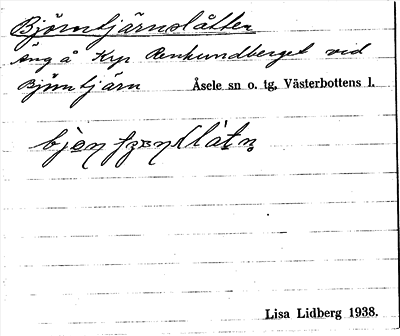 Björntjärnslåtten
Äng å Kyr Renkundberget vid
Björntjärn Åsele sn o. tg, Västerbottens l.
Lisa Lidberg 1938.